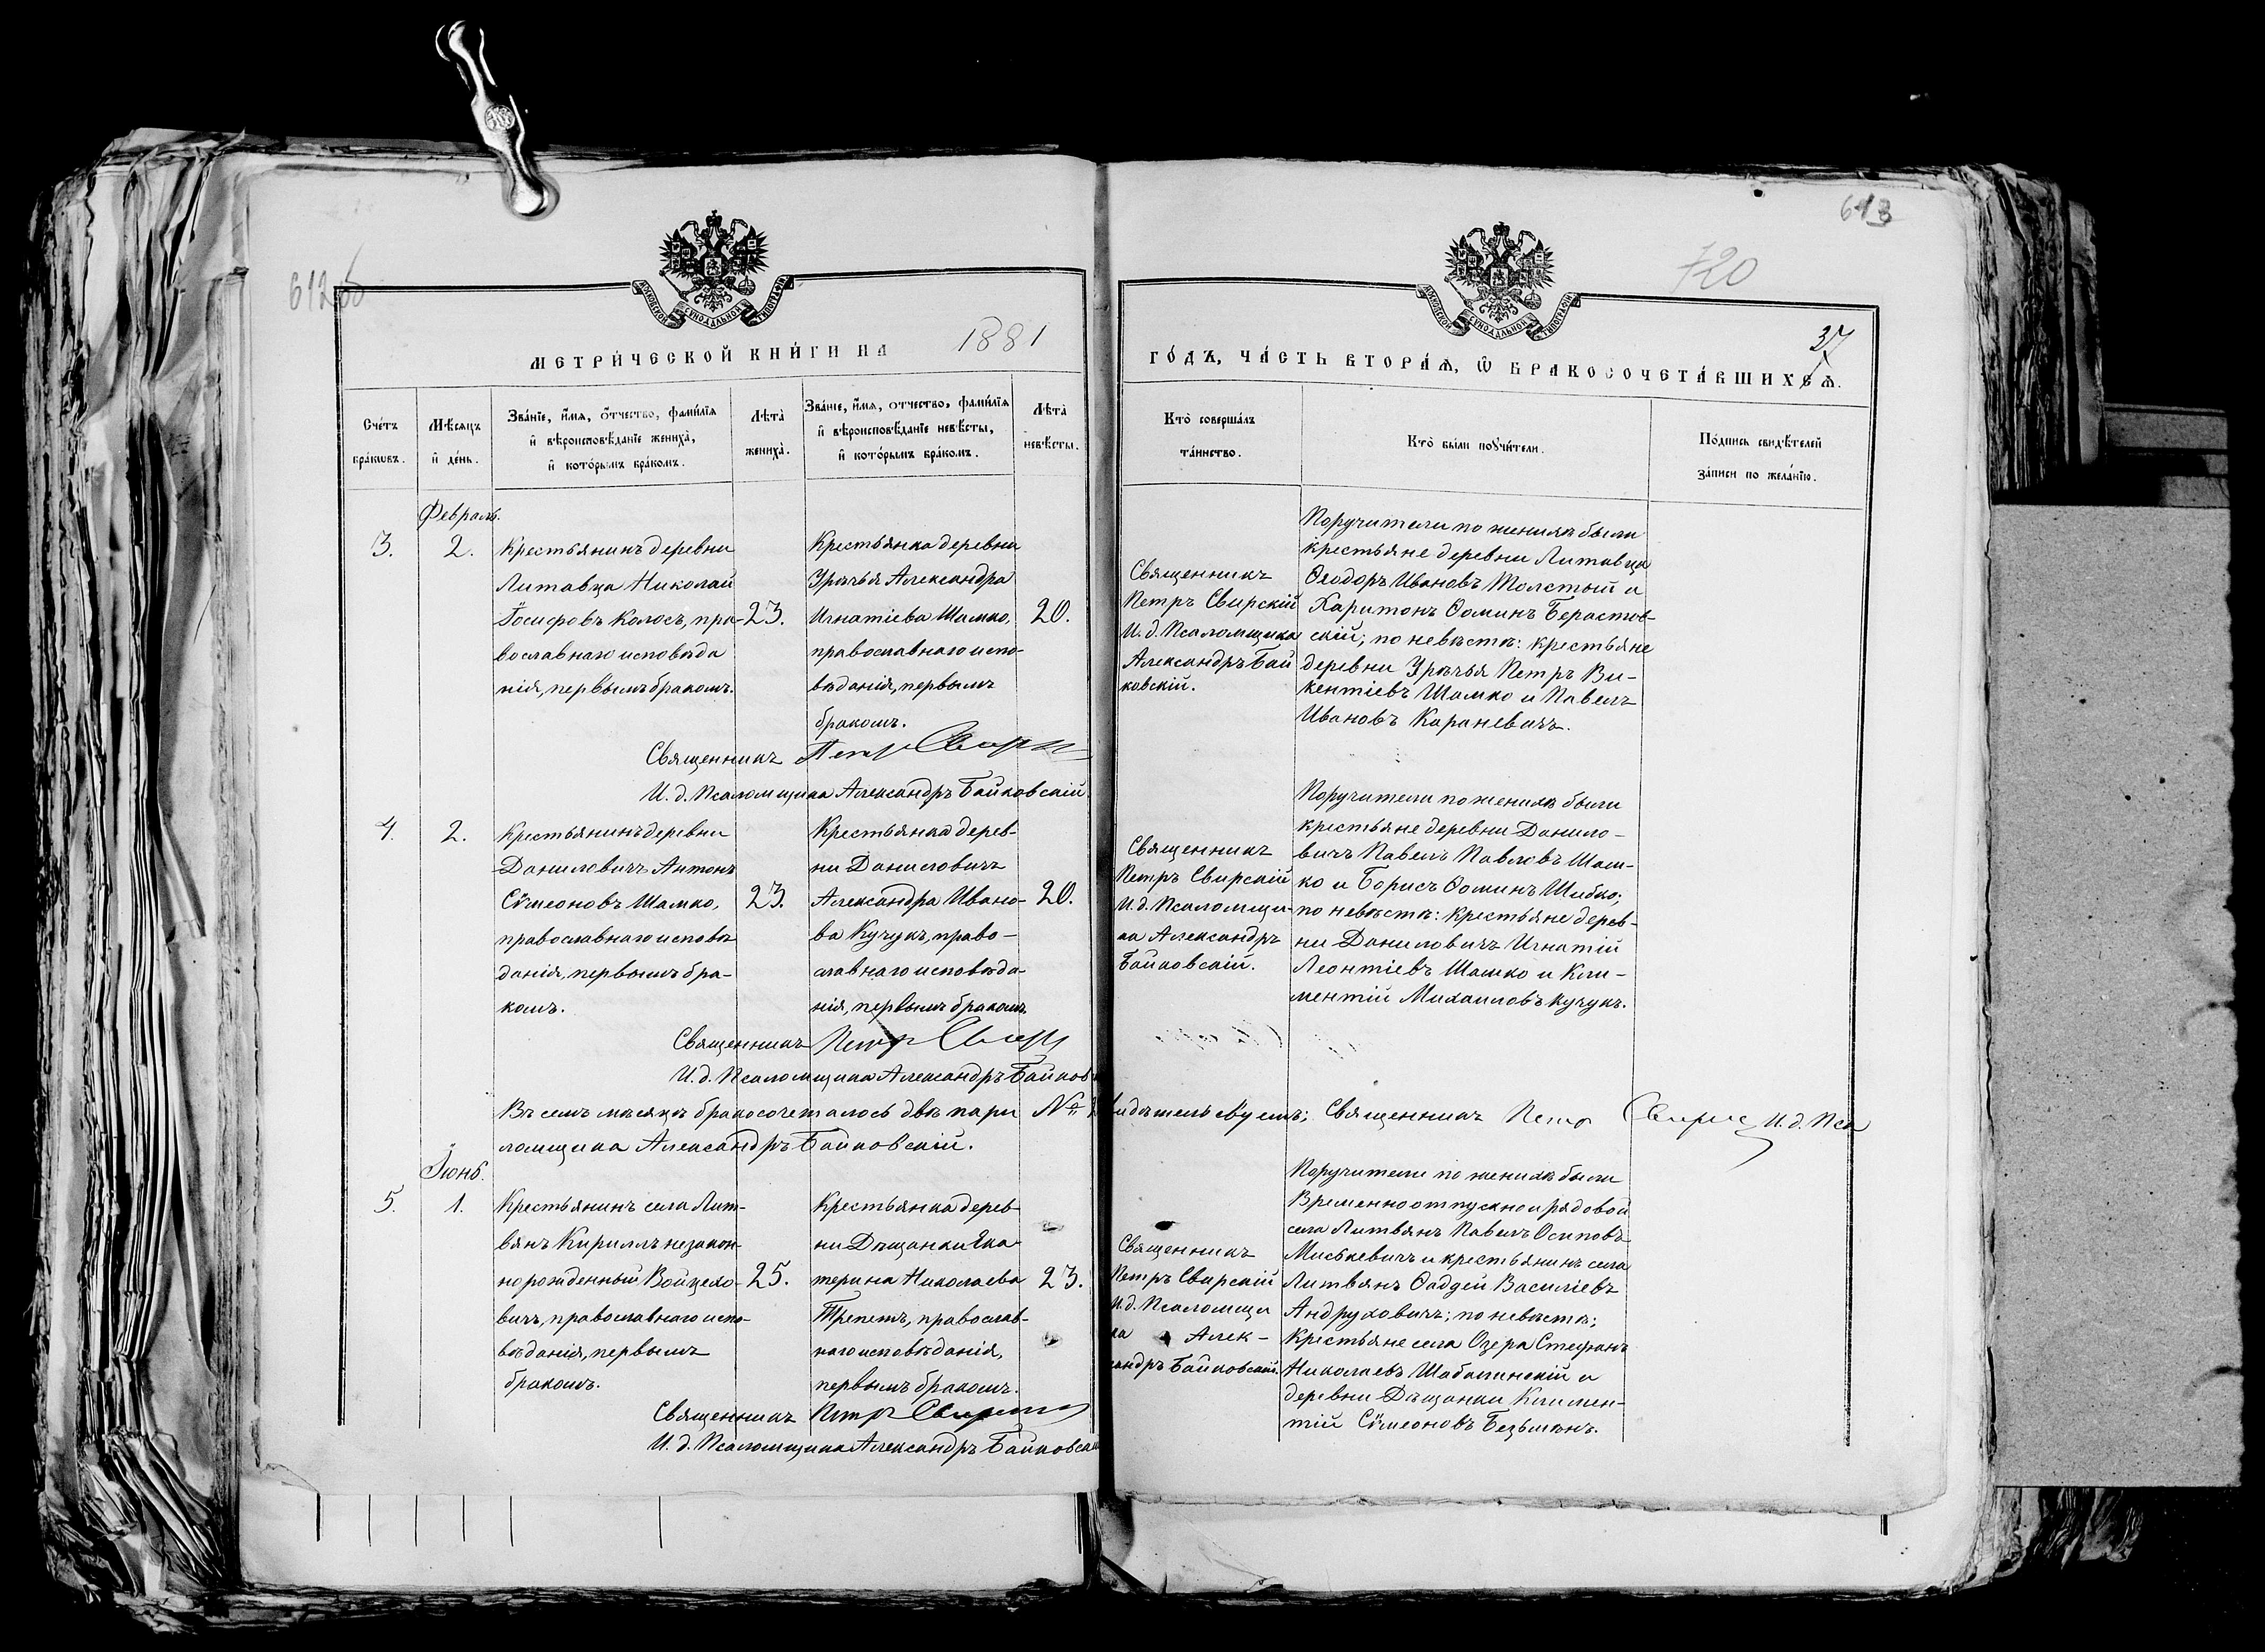 612об
613
720
37
МЕТРИ́ЧЕСКОЙ КНИ́ГИ НА 1881
ГО́ДЪ, ЧА́СТЬ ВТОРА́Ѧ, Ѡ҆ БРАКОСОЧЕТА́ВШИХСѦ.
Сче́тъ бра́кѡвъ.
Мѣ́сѧцъ и҆ де́нь.
Зва́нїе, и҆́мѧ, ѻ҆́тчество, фами́лїѧ
и҆ вѣроисповѣ́данїе жениха̀,
и҆ кото́рымъ бра́комъ.
Лѣта̀ жениха̀.
Зва́нїе, и҆́мѧ, ѻ҆тчество, фами́лїѧ
и҆ вѣроисповѣ́данїе невѣ́сты,
и҆ кото́рымъ бра́комъ.
Лѣта̀ невѣ́сты.
Кто̀ соверша́лъ
та́инство.
Кто̀ бы́ли порꙋчи́тели.
По́дпись свидѣ́телей
за́писи по жела́нїю.
Февраль.
3.
2.
Крестьянинъ деревни
Литавца Николай
Іосифовъ Колосъ, пра-
вославнаго исповѣда
нія, первымъ бракомъ.
23.
Крестьянка деревни
Урѣчья Александра
Игнатіева Шамко,
православнаго испо-
вѣданія, первымъ
бракомъ.
20.
Священникъ
Петръ Свирскій
И. д. Псаломщика
Александръ Бай
ковскій.
Поручители по женихѣ были
крестьяне деревни Литавца
Ѳеодоръ Ивановъ Толстый и
Харитонъ Ѳоминъ Берастов-
скій; по невѣстѣ: крестьяне
деревни Урѣчья Петръ Ви-
кентіевъ Шамко и Павелъ
Ивановъ Караневичъ.
Священникъ Петр Свирс
И. д. Псаломщика Александръ Байковскій.
4.
2.
Крестьянинъ деревни
Даниловичъ Антонъ
Сѵмеоновъ Шамко,
православнаго исповѣ
данія, первымъ бра-
комъ.
23.
Крестьянка дерев-
ни Даниловичъ
Александра Ивано-
ва Кучукъ, право-
славнаго исповѣда-
нія, первымъ бракомъ.
20.
Священникъ
Петръ Свирскій
И. д. Псаломщи-
ка Александръ
Байковскій.
Поручители по женихѣ были
крестьяне деревни Данило-
вичъ Павелъ Павловъ Шам-
ко и Борисъ Ѳоминъ Шибко;
по невѣстѣ: крестьяне дерев-
ни Даниловичъ Игнатій
Леонтіевъ Шамко и Кли-
ментій Михаиловъ Кучукъ.
Священникъ Петр Свирс
И. д. Псаломщика Александръ Байков
Въ семъ мѣсяцѣ бракосочеталось двѣ пари №
идѣтельствуемъ; Священникъ Петр Свирс И. д. Пса
ломщика Александръ Байковскій.
Іюнь.
5.
1.
Крестьянинъ села Лит-
вянъ Кириллъ незакон-
норожденный Войцехо-
вичъ, православнаго испо-
вѣданія, первымъ
бракомъ.
25.
Крестьянка дерев-
ни Дѣщанки Ека
терина Николаева
Трепетъ, православ-
наго исповѣданія,
первымъ бракомъ.
23.
Священникъ
Петръ Свирскій
И. д. Псаломщи
ка Алек-
сандръ Байковскій.
Поручители по женихѣ были
Временноотпускной рядовой
села Литвянъ Павелъ Осиповъ
Миськевичъ и крестьянинъ села
Литвянъ Ѳаддей Василіевъ
Андруховичъ; по невѣстѣ;
Крестьяне села Озера Стефанъ
Николаевъ Шабалинскій и
деревни Дѣщанки Климен-
тій Сѵмеоновъ Безьмѣнъ.
Священникъ Петр Свирс
И. д. Псаломщика Александръ Байковск